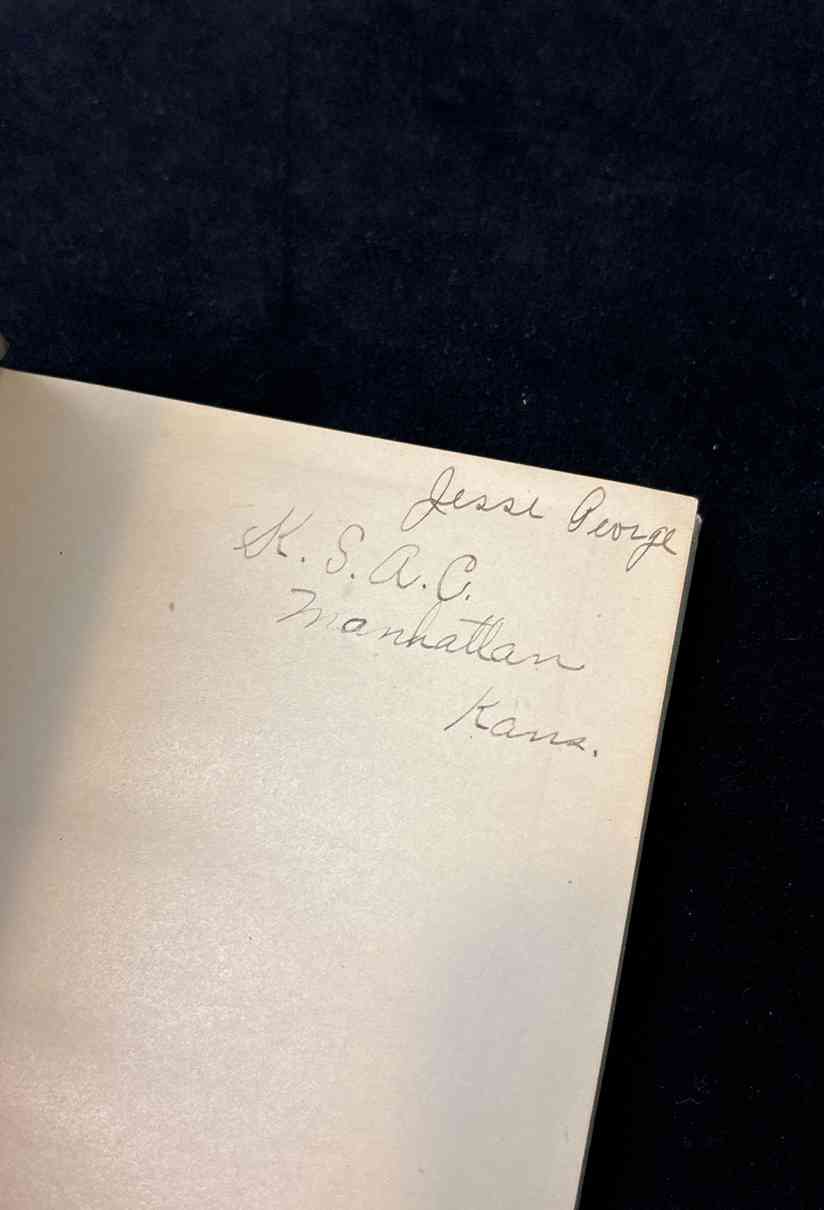 Jesse George
K. S. A. C.
Manhattan
Kans.